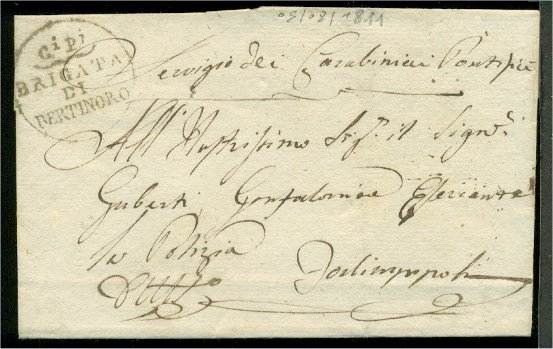 03/08/1811
C.i P.i
BRIGATA
DI
BERTINORO
Servigio dei Carabinieri Pontifici
All' Illustrissimo Sig. il Sign.
Guberti Gonfaloniere Esercente
la Polizia
Forlimpopoli